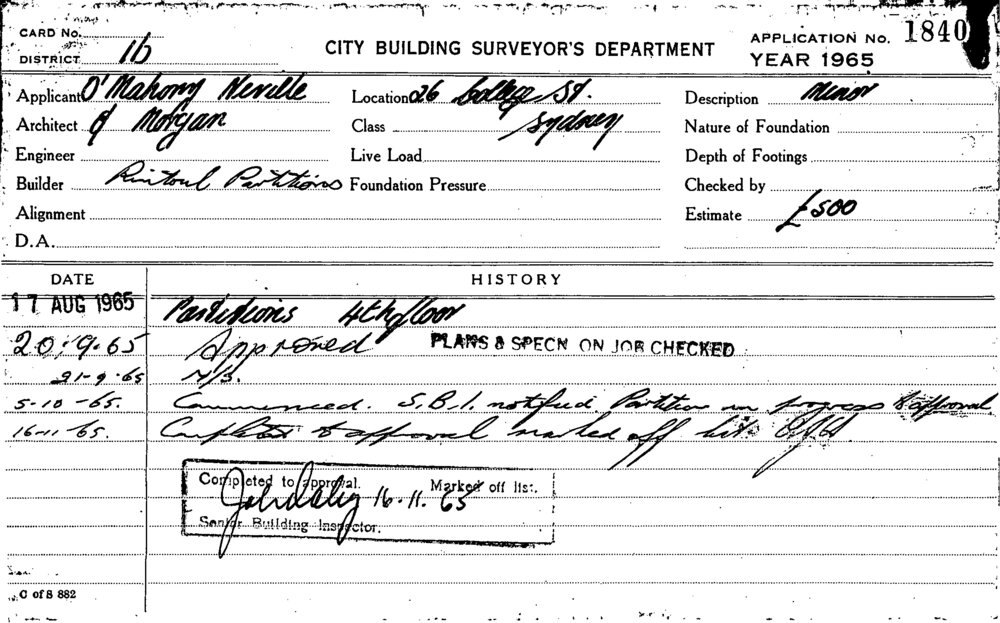 CARD No.
DISTRICT 1b
CITY BUILDING SURVEYOR'S DEPARTMENT
APPLICATION No. 1840
YEAR 1965
Applicant O'Mahony Neville
Architect & Morgan
Engineer
Builder Rintoul Partitions
Alignment
D.A.
Location 26 College St.
Class Sydney
Live Load
Foundation Pressure
Description Minor
Nature of Foundation
Depth of Footings
Checked by
Estimate £500
DATE HISTORY
17 AUG 1965 Partitions 4th floor
20.9.65 Approved PLANS & SPECN ON JOB CHECKED
21-9-65 N/S.
5-10-65. Commenced. S.B.I. notified. Partition in progress to approval
16-11-65. Completed to approval marked off list.
Completed to approval. Marked off list.
16.11.65
Senior Building Inspector.
C of S 882